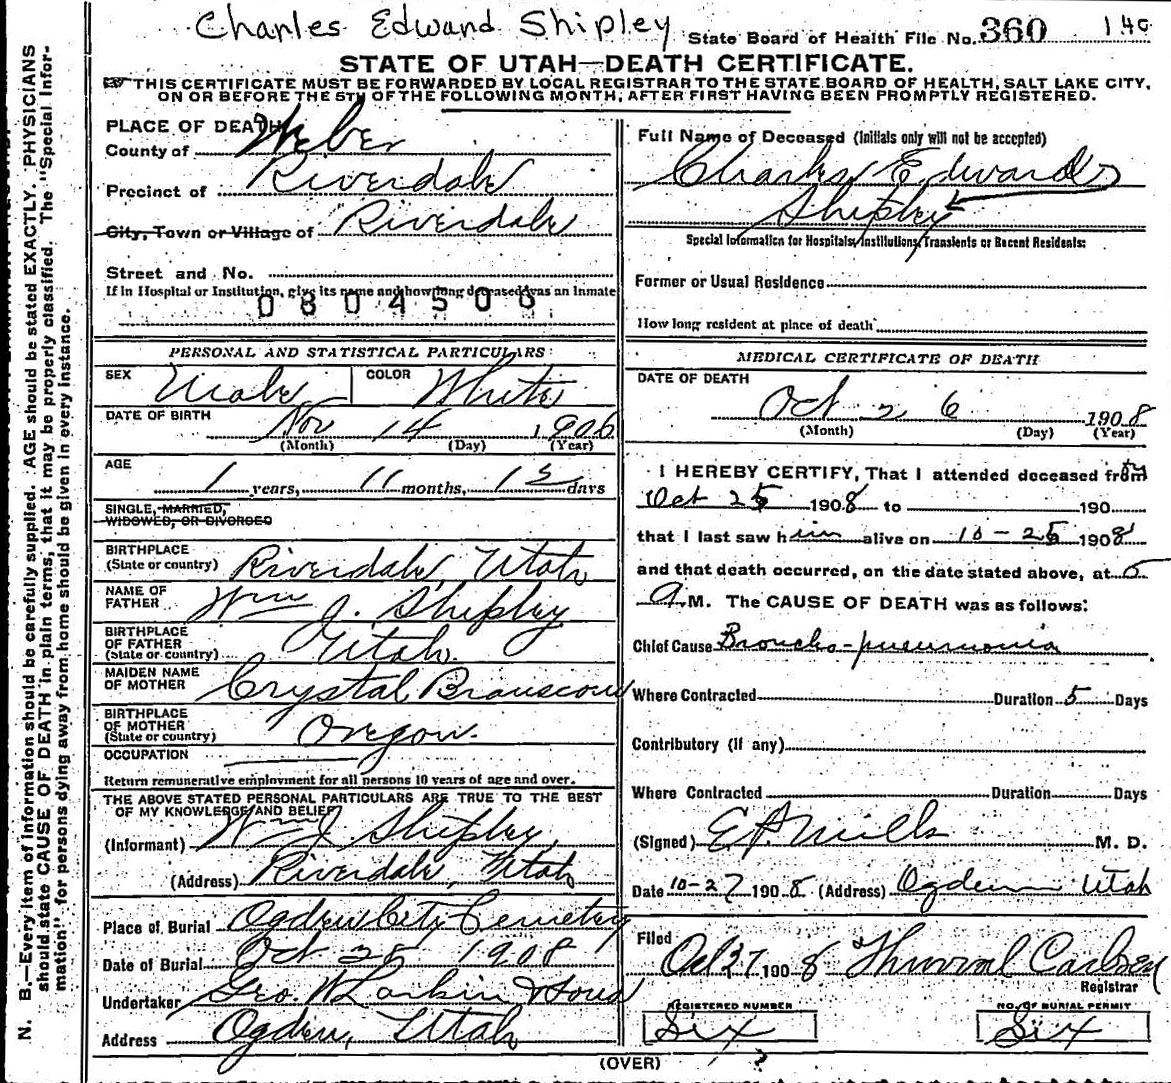 Charles Edward Shipley
State Board of Health File No. 360
140
STATE OF UTAH—DEATH CERTIFICATE.
THIS CERTIFICATE MUST BE FORWARDED BY LOCAL REGISTRAR TO THE STATE BOARD OF HEALTH, SALT LAKE CITY,
ON OR BEFORE THE 5TH OF THE FOLLOWING MONTH, AFTER FIRST HAVING BEEN PROMPTLY REGISTERED.
N. B.—Every item of information should be carefully supplied. AGE should be stated EXACTLY. PHYSICIANS
should state CAUSE OF DEATH in plain terms, that it may be properly classified. The "Special Infor-
mation" for persons dying away from home should be given in every instance.
PLACE OF DEATH
County of Weber
Precinct of Riverdale
City, Town or Village of Riverdale
Street and No.
If in Hospital or Institution, give its name and how long deceased was an inmate
0804506
PERSONAL AND STATISTICAL PARTICULARS
SEX Male COLOR White
DATE OF BIRTH Nov 14 1906
(Month) (Day) (Year)
AGE 1 years, 11 months, days
SINGLE, MARRIED,
WIDOWED, OR DIVORCED
BIRTHPLACE
(State or country) Riverdale, Utah
NAME OF
FATHER Wm J. Shipley
BIRTHPLACE
OF FATHER
(State or country) Utah
MAIDEN NAME
OF MOTHER Crystal Branscom
BIRTHPLACE
OF MOTHER
(State or country) Oregon.
OCCUPATION
Return remunerative employment for all persons 10 years of age and over.
THE ABOVE STATED PERSONAL PARTICULARS ARE TRUE TO THE BEST
OF MY KNOWLEDGE AND BELIEF
(Informant) Wm J Shipley,
(Address) Riverdale, Utah
Place of Burial Ogden City Cemetery
Date of Burial Oct 28 1908
Undertaker Geo. W Larkin & Sons
Address Ogden, Utah
Full Name of Deceased (Initials only will not be accepted)
Charles Edward
Shipley
Special Information for Hospitals, Institutions, Transients or Recent Residents:
Former or Usual Residence
How long resident at place of death
MEDICAL CERTIFICATE OF DEATH
DATE OF DEATH
Oct 26 1908
(Month) (Day) (Year)
I HEREBY CERTIFY, That I attended deceased from
Oct 25 1908 to 190
that I last saw him alive on 10-25 1908
and that death occurred, on the date stated above, at 5
A.M. The CAUSE OF DEATH was as follows:
Chief Cause Broncho-pneumonia
Where Contracted Duration 5 Days
Contributory (if any)
Where Contracted Duration Days
(Signed) E. P. Mills M. D.
Date 10-27 1908 (Address) Ogden Utah
Filed Oct 27 1908 Carlsen
Registrar
REGISTERED NUMBER
Six
NO. OF BURIAL PERMIT
Six
(OVER)
?